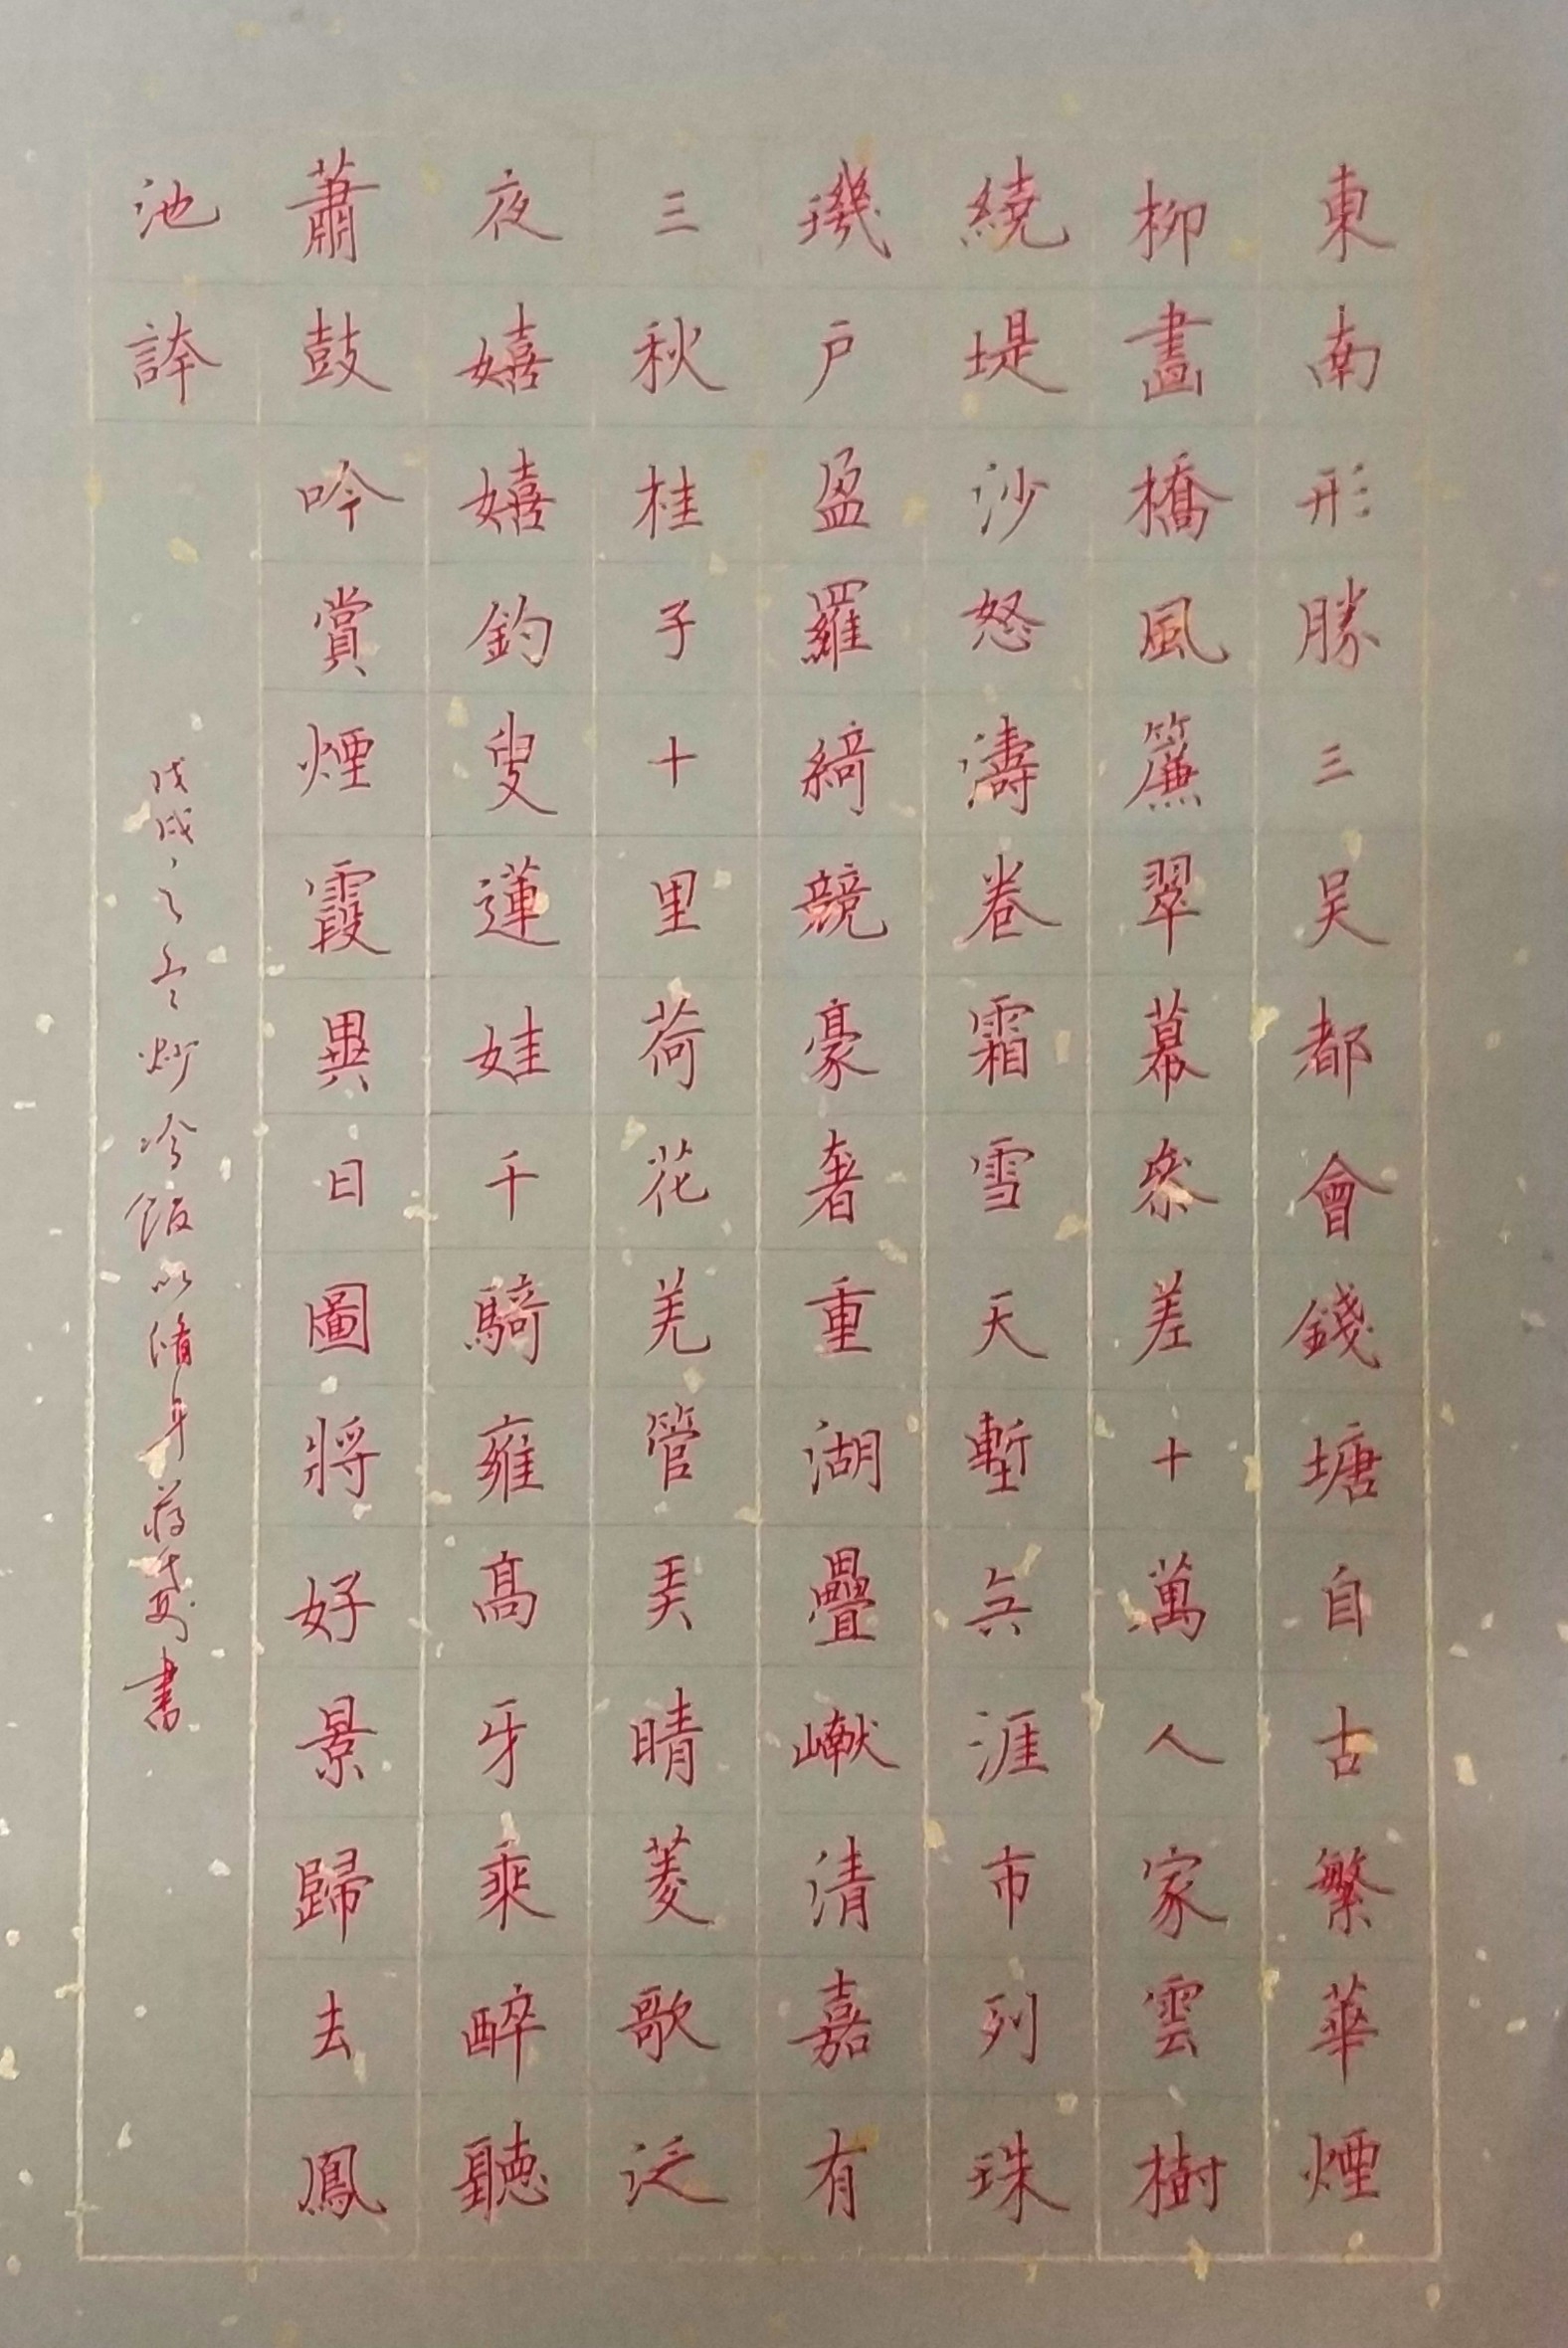 東南形勝三吴都會錢塘自古繁華煙
柳畫橋風簾翠幕叅差十萬人家雲樹
繞堤沙怒濤卷霜雪天塹無涯市列珠
璣户盈羅綺競豪奢重湖疊巘清嘉有
三秋桂子十里荷花羌管弄晴菱歌泛
夜嬉嬉釣叟蓮娃千騎擁高牙乘醉聽
蕭鼓吟賞煙霞異日圖將好景歸去鳳
池誇
戊戌之冬炒冷飯以脩身蔣書